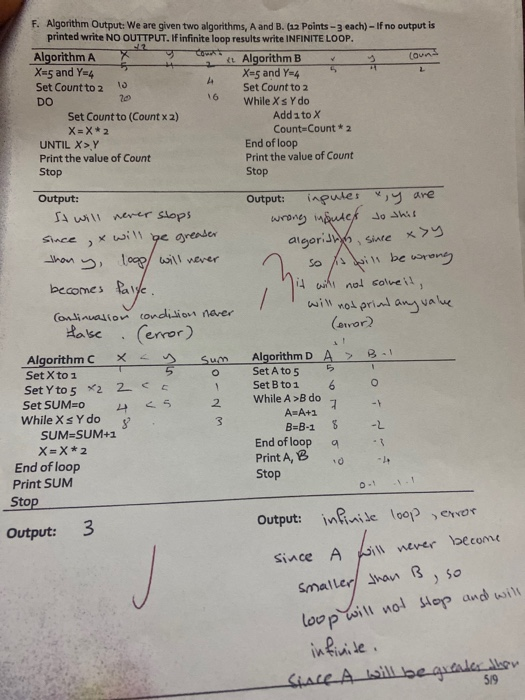 F. Algorithm Output: We are given two algorithms, A and B. (12 Points – 3 each) – If no output is
printed write NO OUTTPUT. If infinite loop results write INFINITE LOOP.
Algorithm A x y Count
X=5 and Y=4 5 4 2
Set Count to 2 10 4
DO 20 16
Set Count to (Count x 2)
X = X * 2
UNTIL X> Y
Print the value of Count
Stop
Algorithm B x y Count
X=5 and Y=4 5 4 2
Set Count to 2
While X ≤ Y do
Add 1 to X
Count=Count * 2
End of loop
Print the value of Count
Stop
Output:
It will never stops
since , x will be greater
than y, loop will never
becomes false.
Continuation condition never
false . (error)
Output: inputes x, y are
wrong inputes to this
algorithm, since x>y
so it will be wrong
it will not solve it,
will not print any value
(error)
Algorithm C x < y Sum
Set X to 1 1 5 0
Set Y to 5 x2 2 < 5 1
Set SUM=0 4 < 5 2
While X ≤ Y do 8 3
SUM=SUM+1
X = X * 2
End of loop
Print SUM
Stop
Algorithm D A > B -1
Set A to 5 5 1
Set B to 1 6 0
While A >B do 7 -1
A=A+1
B=B-1 8 -2
End of loop 9 -3
Print A, B 10 -4
Stop
0-1 -1-1
Output: 3
Output: infinite loop, error
since A will never become
smaller than B, so
loop will not stop and will
infinite.
since A will be greater than
5/9